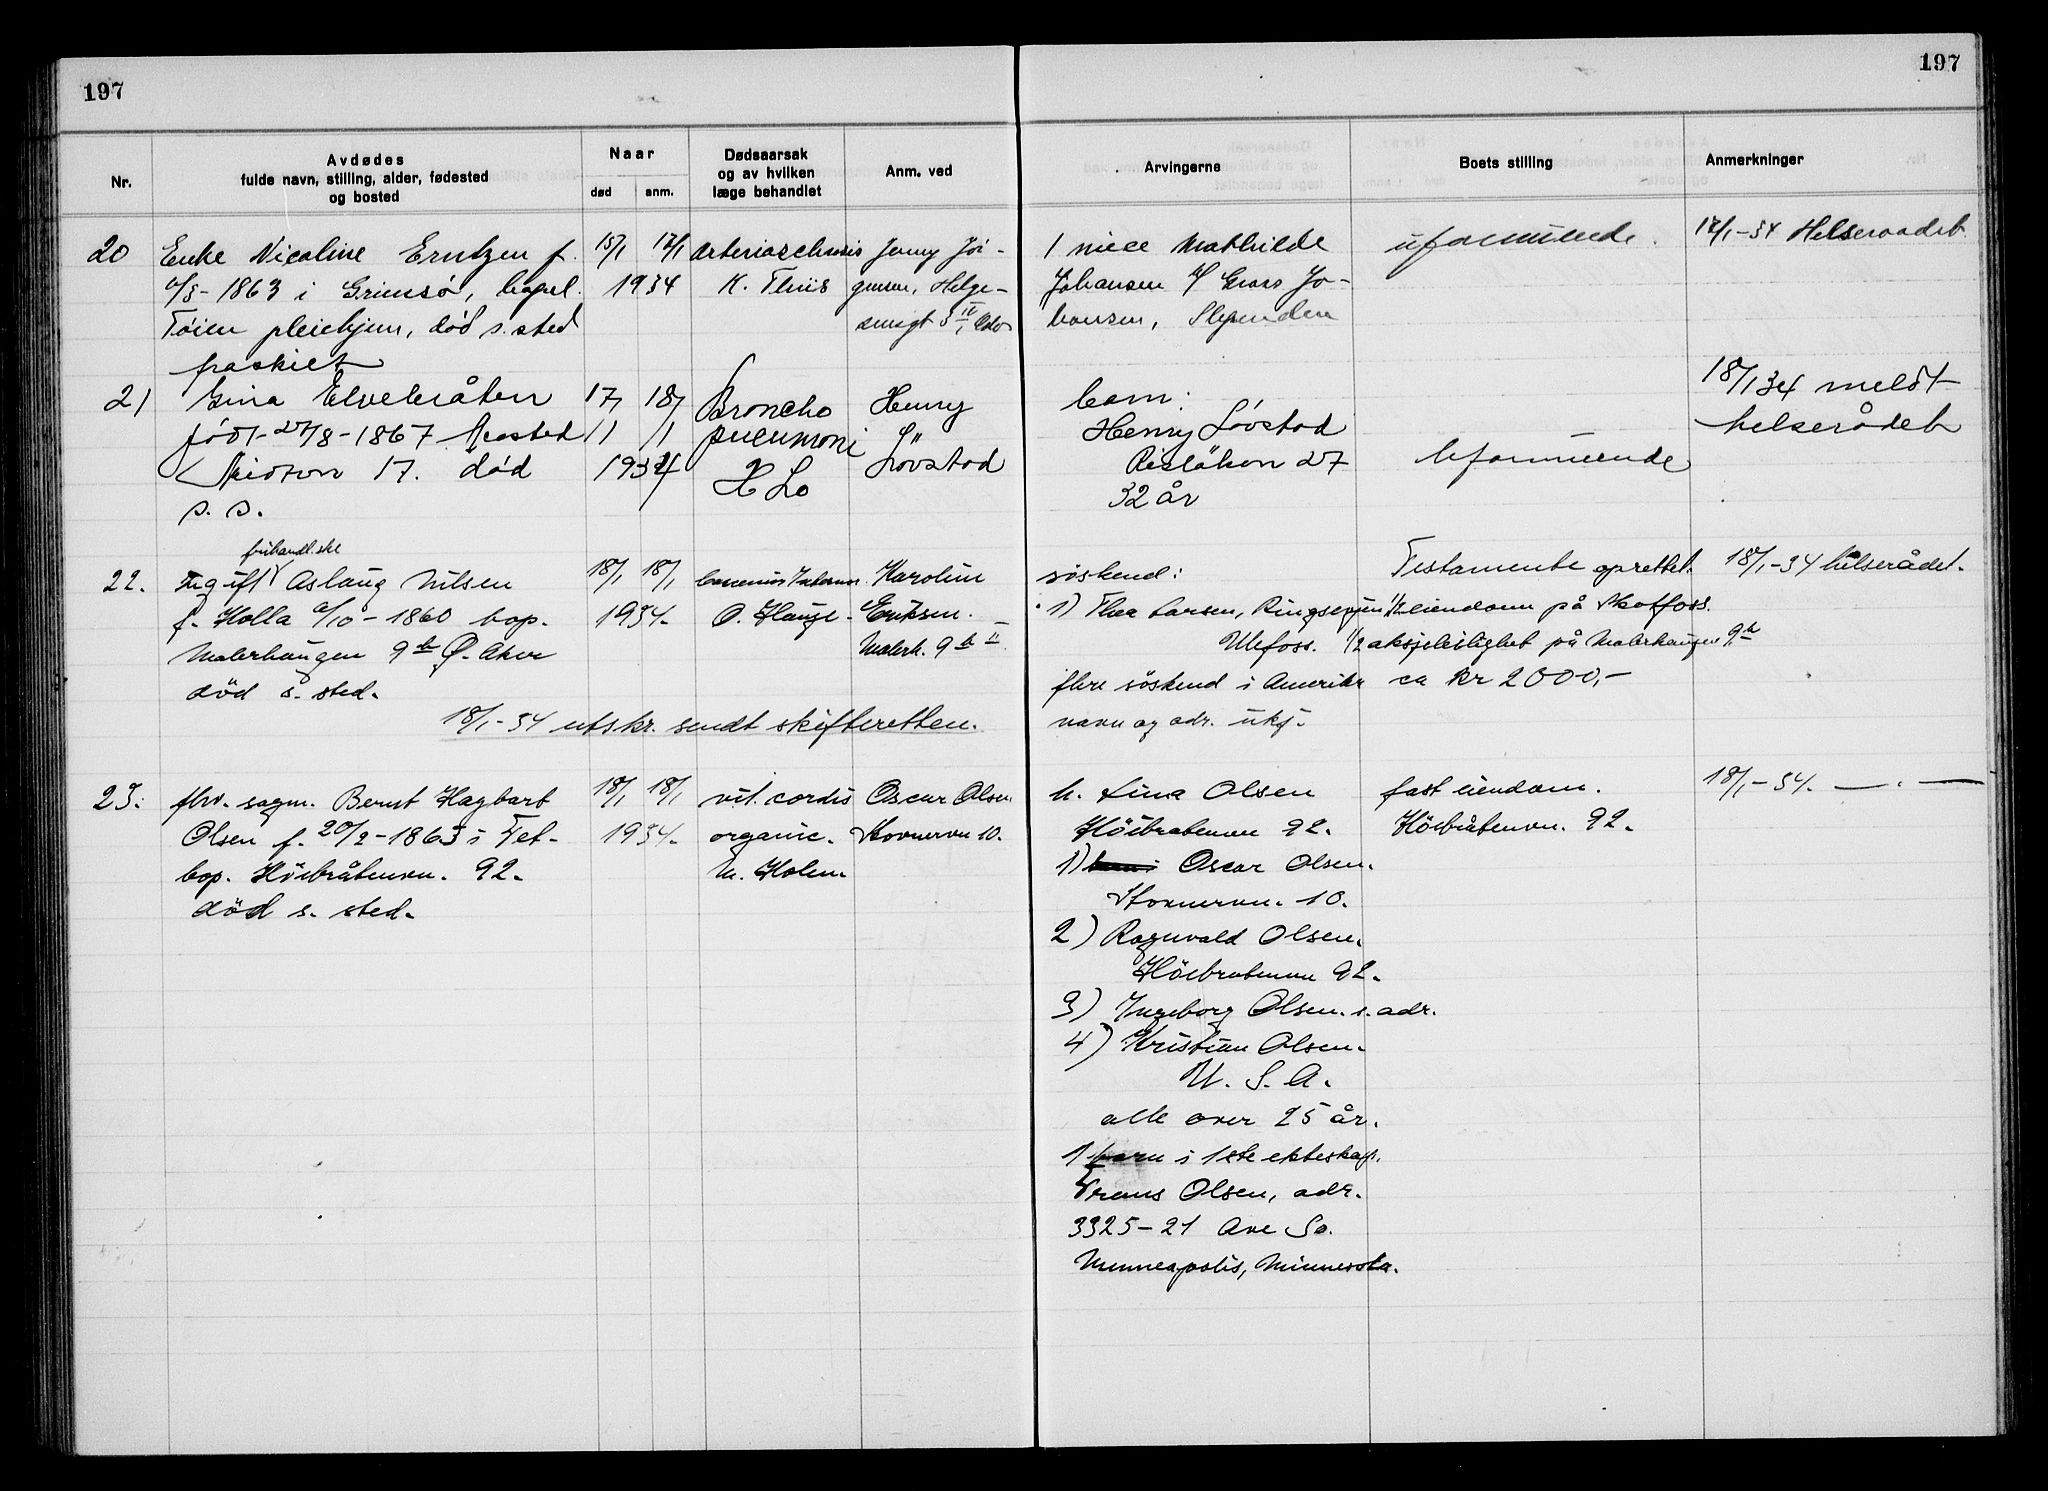 197
197
Nr.
Avdødes
fulde navn, stilling, alder, fødested
og bosted
Naar
død
anm.
Dødsaarsak
og av hvilken
læge behandlet
Anm. ved
Arvingerne
Boets stilling
Anmerkninger
20
Enke Nicoline Erntzen f.
1863 i Grimsø,
Tøien pleiehjem, død s. sted
fraskilt
15/1 17/1
1934
K. Thiis
Jenny
1 niece Mathilde
Johansen Jo-
hansen, Slependen
uformuende.
17/1-34 Helseraadet
21
Gina Elvebråten
født 27/8-1867
17. død
s. s.
17/1 18/1
1934
Broncho
pneumoni
Lo
Henry
Lövstad
barn:
Henry Lövstad
27
32 år
Uformuende
18/1 34 meldt
helserådet
22.
Ugift Aslaug Nilsen
f. Holla 1860 bop.
Malerhaugen 9b Ø. Aker
död s. sted.
18/1-34 utskr. sendt skifteretten.
18/1 18/1
1934.
O. Hauge.
Karoline
Eriksen.
Malerh. 9b II
söskend:
1) Thea Larsen,
Ulefoss.
flere söskend i Amerika
navn og adr. ukj.
Testamente oprettet.
eiendom på Skotfoss.
1/2 aksjeleilighet på Malerhaugen 9b
ca kr 2000,-
18/1-34 helserådet.
23.
fhv. sagm. Bernt Hagbart
Olsen f. 20/2-1863 i Fet.
bop. Höibråtenvn. 92.
död s. sted.
18/1 18/1
1934.
vit. cordis
organic.
M. Holm.
Oscar Olsen
Stovnervn 10.
h. Lina Olsen
Höibratenvn 92.
1) Oscar Olsen.
Stovnervn. 10.
2) Ragnvald Olsen.
Höibratenvn 92.
3) Ingeborg Olsen. s. adr.
4) Kristian Olsen.
U. S. A.
alle over 25 år.
1 barn i 1ste ekteskap.
Frans Olsen, adr.
3325-21 Ave So.
Minneapolis, Minnesota.
fast eiendom.
Höibråtenvn. 92.
18/1-34. — . —